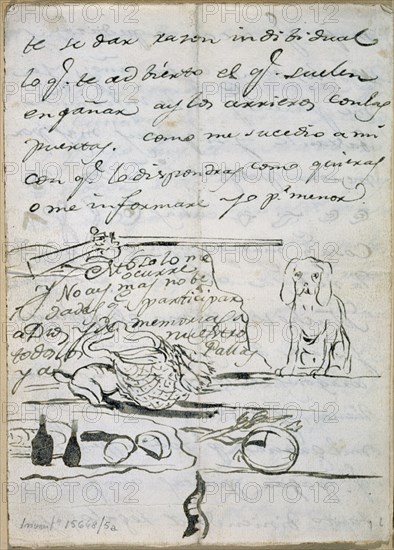 te se dar razon indibidual
lo q.e te adbierto el q.e suelen
engañar ay los arrieros con las
puertas. como me sucedio a mi
con q.e lo dispondras como quieras
o me informare yo p.r menor
solo me
ocurre
Y No ay mas nobe
dades q participar
a Dios y da memorias a
todos nuestro
y a
Invent.º 15648/5a
PHOTO12